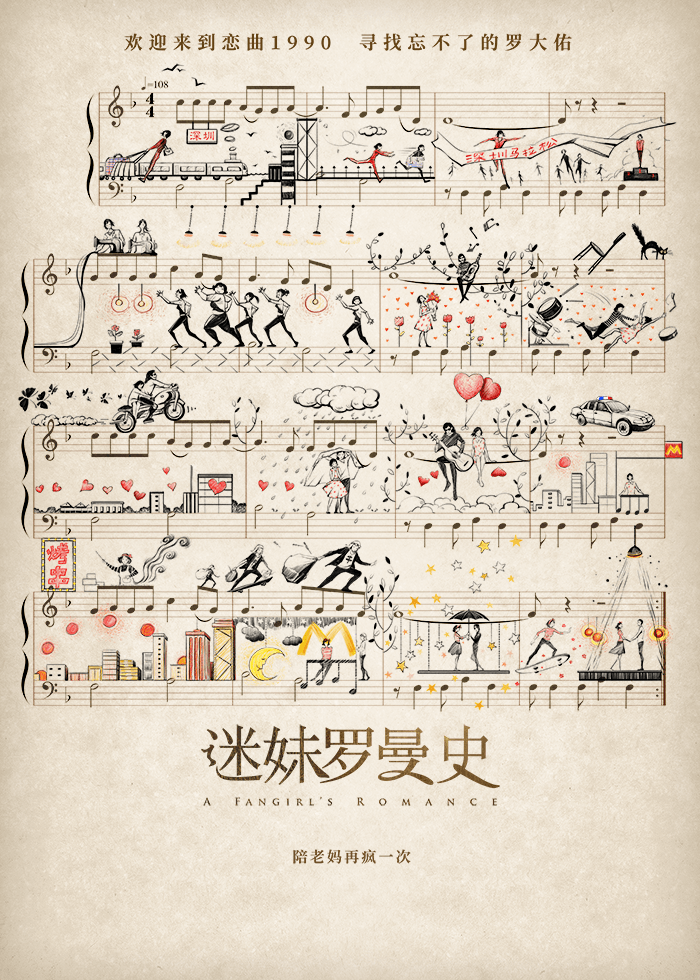 欢迎来到恋曲1990 寻找忘不了的罗大佑
♩=108
4
4
深圳
深圳马拉松
M
烤串
M
迷妹罗曼史
A FANGIRL'S ROMANCE
陪老妈再疯一次